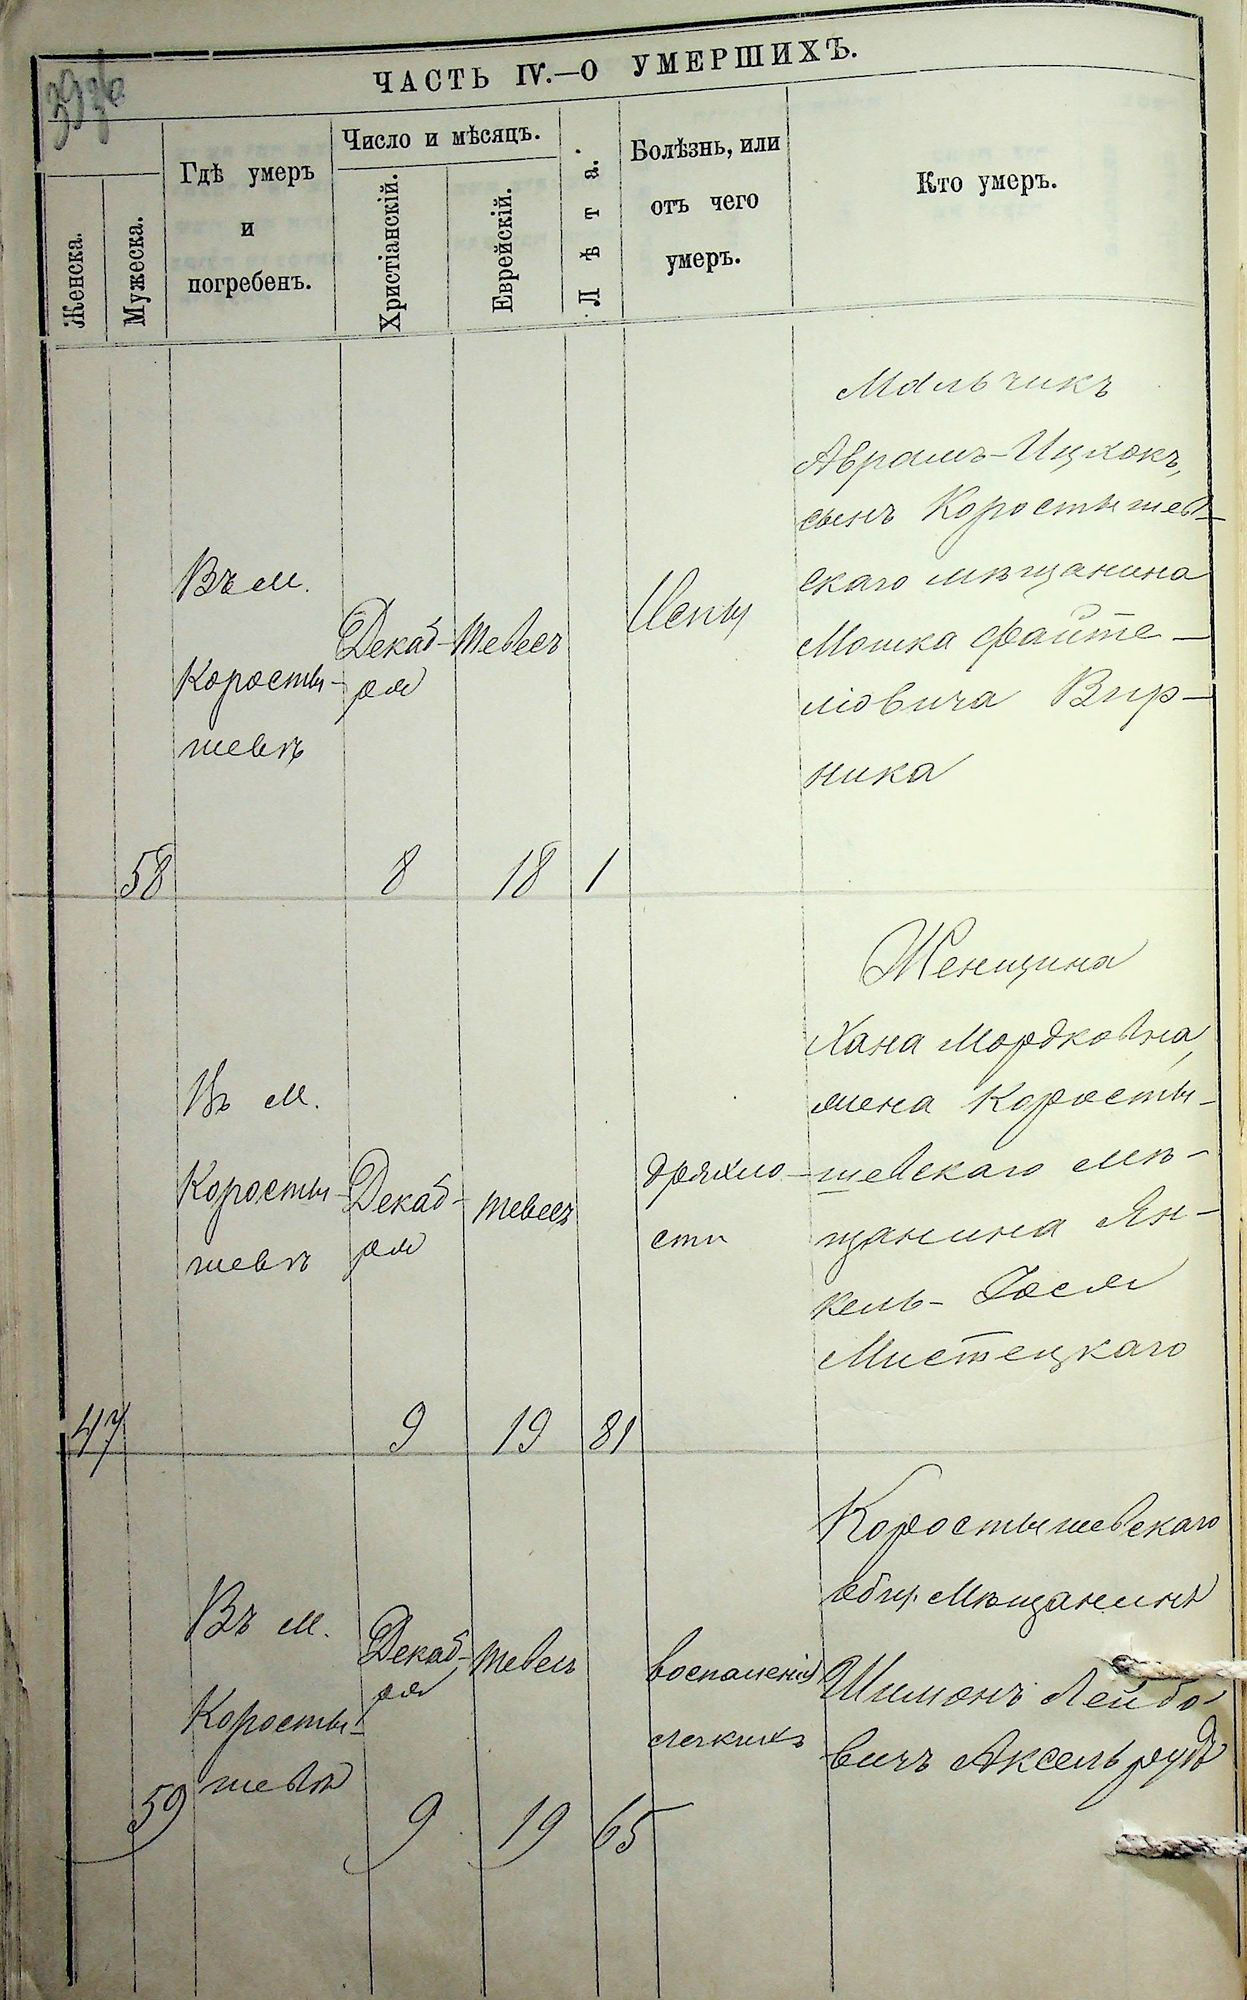 ЧАСТЬ IV.—О УМЕРШИХЪ.
Женска.
Мужеска.
Гдѣ умеръ
и
погребенъ.
Число и мѣсяцъ.
Христіанскій.
Еврейскій.
Лѣта.
Болѣзнь, или
отъ чего
умеръ.
Кто умеръ.
58
Въ м.
Коросты-
шевѣ
Декаб-
ря
8
Тевесъ
18
1
Оспы
Мальчикъ
Аврамъ-Ицхокъ,
сынъ Коростышев-
скаго мѣщанина
Мошка Файте-
лiовича Вир-
ника
47
Въ м.
Коросты-
шевѣ
Декаб-
ря
9
Тевесъ
19
81
дряхло-
сти
Женщина
Хана Мордковна,
жена Коросты-
шевскаго мѣ-
щанина Ян-
кель-Iося
Мистецкаго
59
Въ м.
Коросты-
шевѣ
Декаб-
ря
9
Тевесъ
19
65
воспаленія
легкихъ
Коростышевскаго
общ. Мѣщанинъ
Шимонъ Лейбо-
вичъ Аксельрудъ